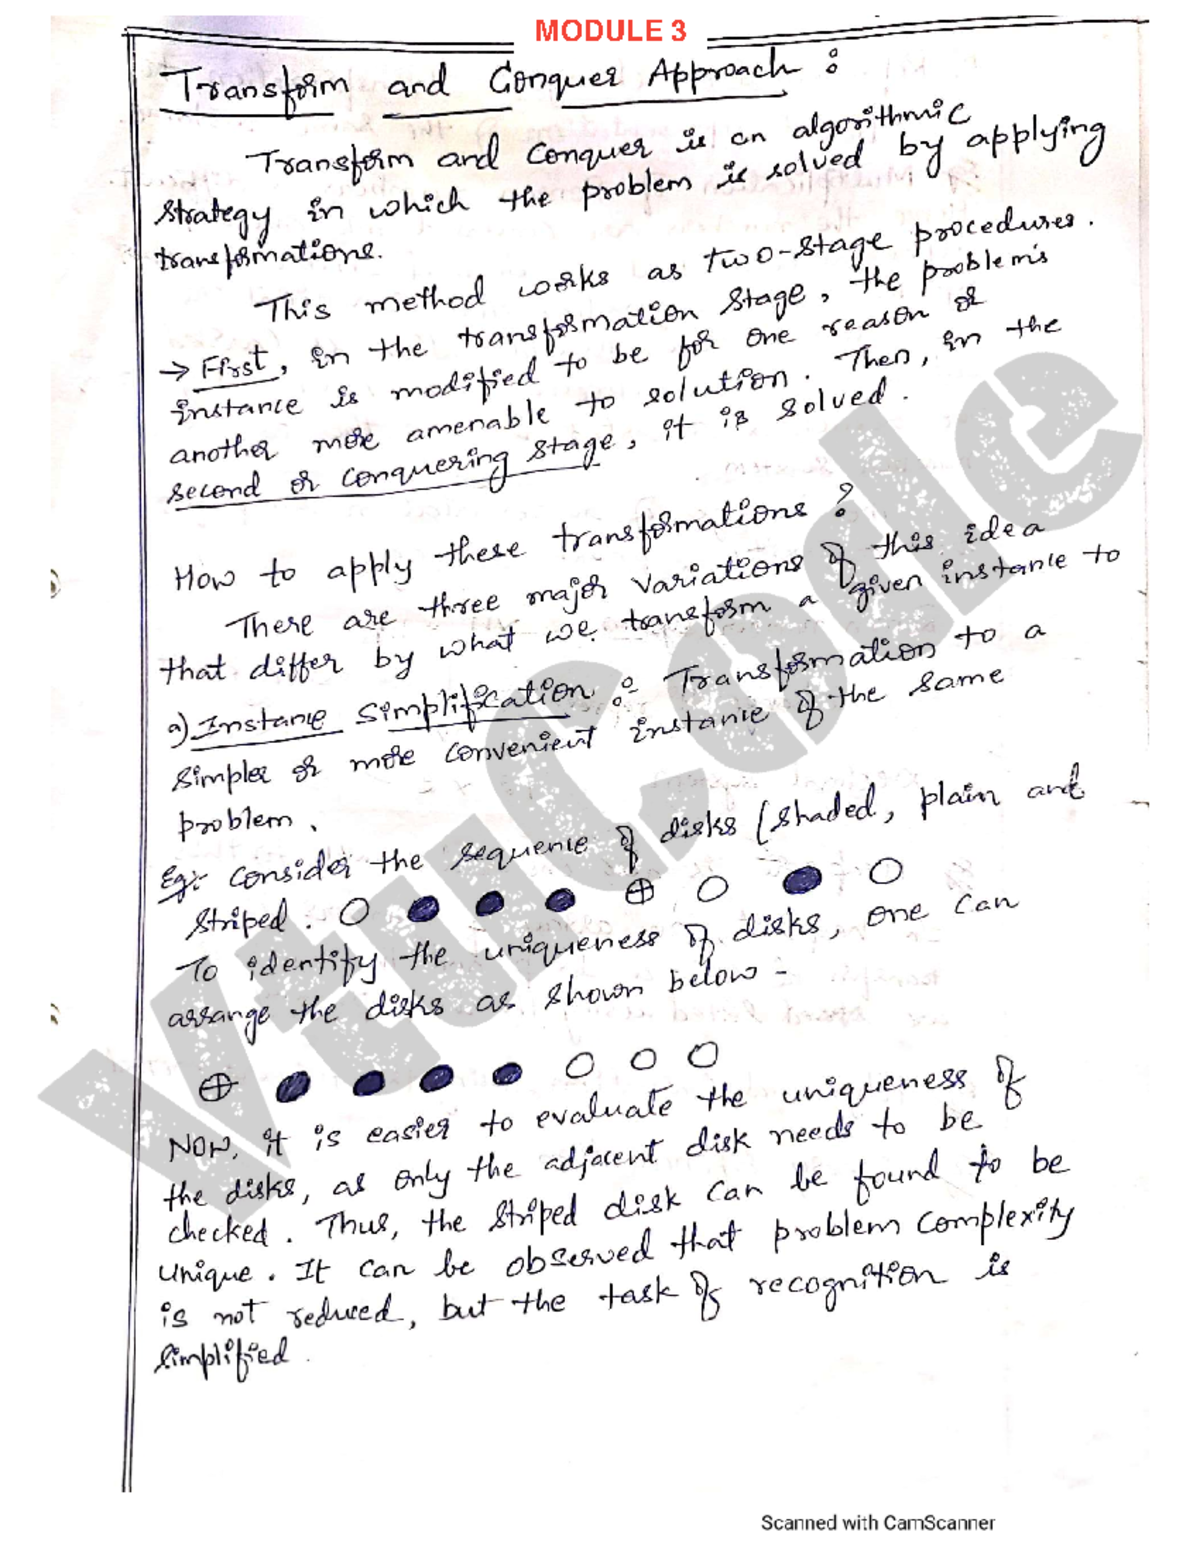 MODULE 3
Transform and Conquer Approach :
Transform and Conquer is an algorithmic
strategy in which the problem is solved by applying
transformations.
This method works as two-stage procedures.
→ First, in the transformation stage, the problem's
instance is modified to be for one reason or
another more amenable to solution. Then, in the
second or conquering stage, it is solved.
How to apply these transformations ?
There are three major variations of this idea
that differ by what we transform a given instance to
a) Instance Simplification :- Transformation to a
simpler or more convenient instance of the same
problem.
Eg:- Consider the sequence of disks (shaded, plain and
striped.
To identify the uniqueness of disks, one can
arrange the disks as shown below -
Now, it is easier to evaluate the uniqueness of
the disks, as only the adjacent disk needs to be
checked. Thus, the striped disk can be found to be
unique. It can be observed that problem complexity
is not reduced, but the task of recognition is
simplified.
VtuCode
Scanned with CamScanner